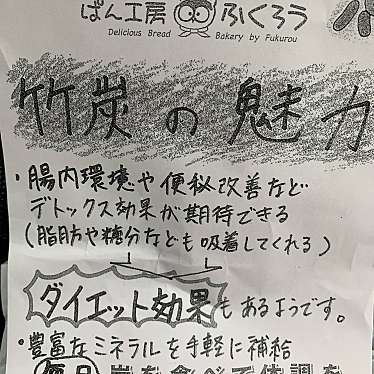 ぱん工房 ふくろう
Delicious Bread Bakery by Fukurou
竹炭の魅力
・腸内環境や便秘改善など
デトックス効果が期待できる
(脂肪や糖分なども吸着してくれる)
ダイエット効果もあるようです。
・豊富なミネラルを手軽に補給
毎日炭を食べて体調を